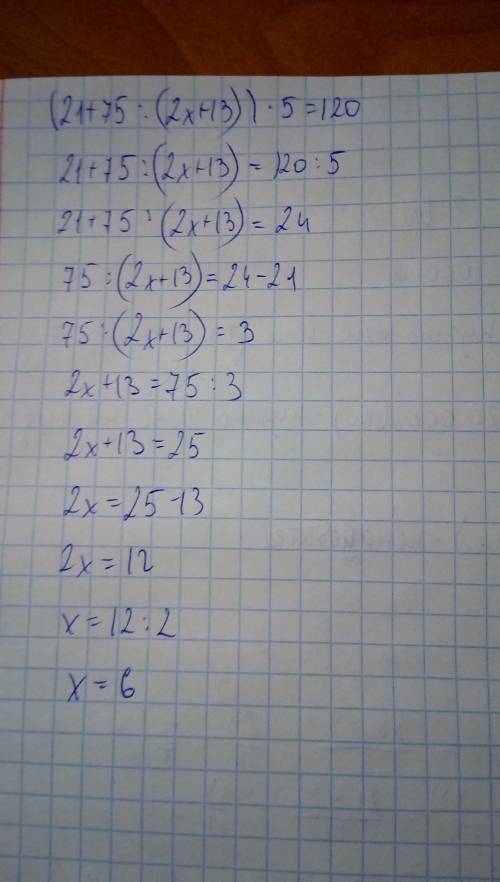 (21+75:(2x+13))·5=120
21+75:(2x+13)=120:5
21+75:(2x+13)=24
75:(2x+13)=24-21
75:(2x+13)=3
2x+13=75:3
2x+13=25
2x=25-13
2x=12
x=12:2
x=6